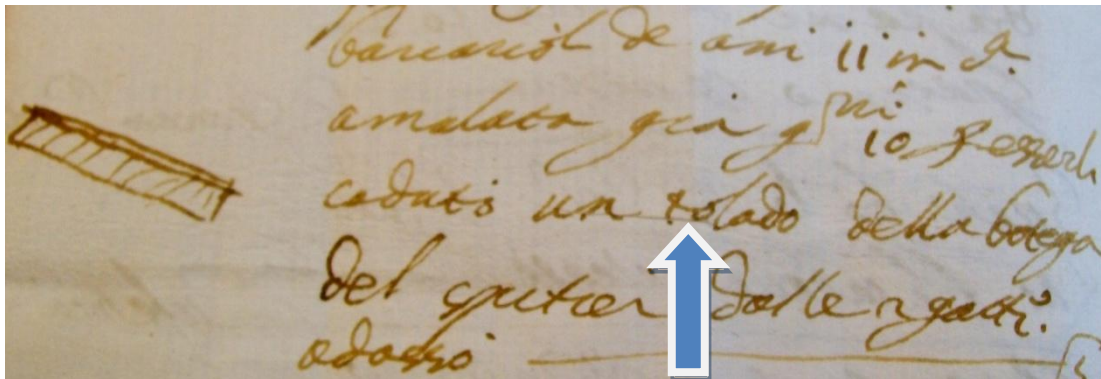 barcariol de ani 11 in c.ª
amalato gia g.ni 10 p esserli
caduto un tolado della botega
del spitier dalle 2 gatti.
adosso